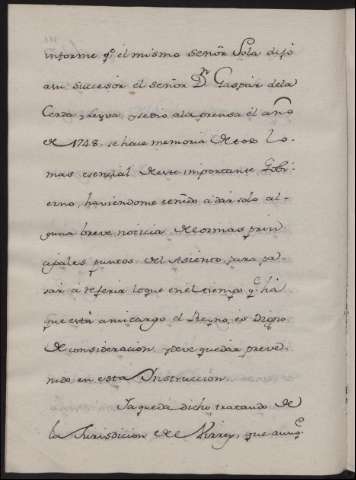 informe q.e el mismo señor Sola dejó
a su sucesor el señor D.n Gaspar dela
Cerda, y Leyva, y se dio ala prensa el año
de 1748. se hace memoria de todo lo
mas esencial de este importante Gobi
erno, haviendome ceñido a dar solo al-
guna breve noticia de los mas prin
cipales puntos del Asiento, para pa-
sar á referir lo que en el tiempo q.e há
que está a mi cargo el Reyno, es Digno
de consideracion, y deve quedar preve
nido en esta Instruccion.
Ya queda dicho tratando de
la Jurisdicion de Virrey, que aunq.e